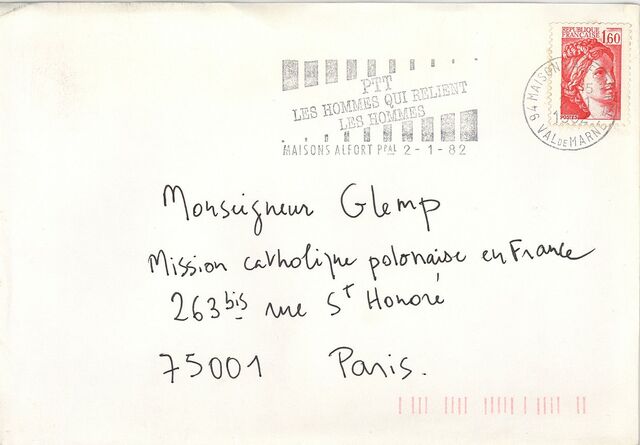 REPUBLIQUE
FRANCAISE
1,60
PTT
LES HOMMES QUI RELIENT
LES HOMMES
MAISONS ALFORT PPAL 2-1-82
94 MAISON
VAL DE MARNE
Monseigneur Glemp
Mission catholique polonaise en France
263 bis rue St Honoré
75001 Paris.